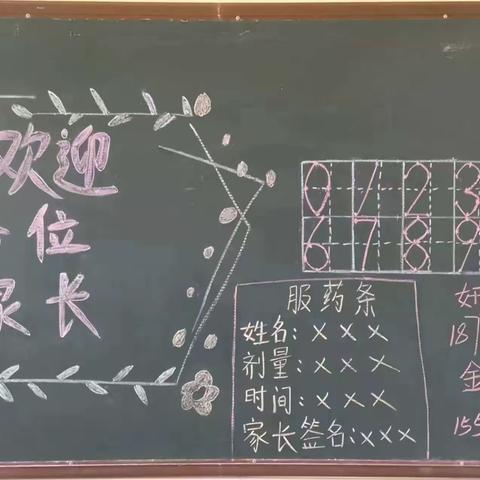 欢迎
各位
家长
0 1 2 3
6 7 8 9
服药条
姓名：×××
剂量：×××
时间：×××
家长签名：×××
187
金
155